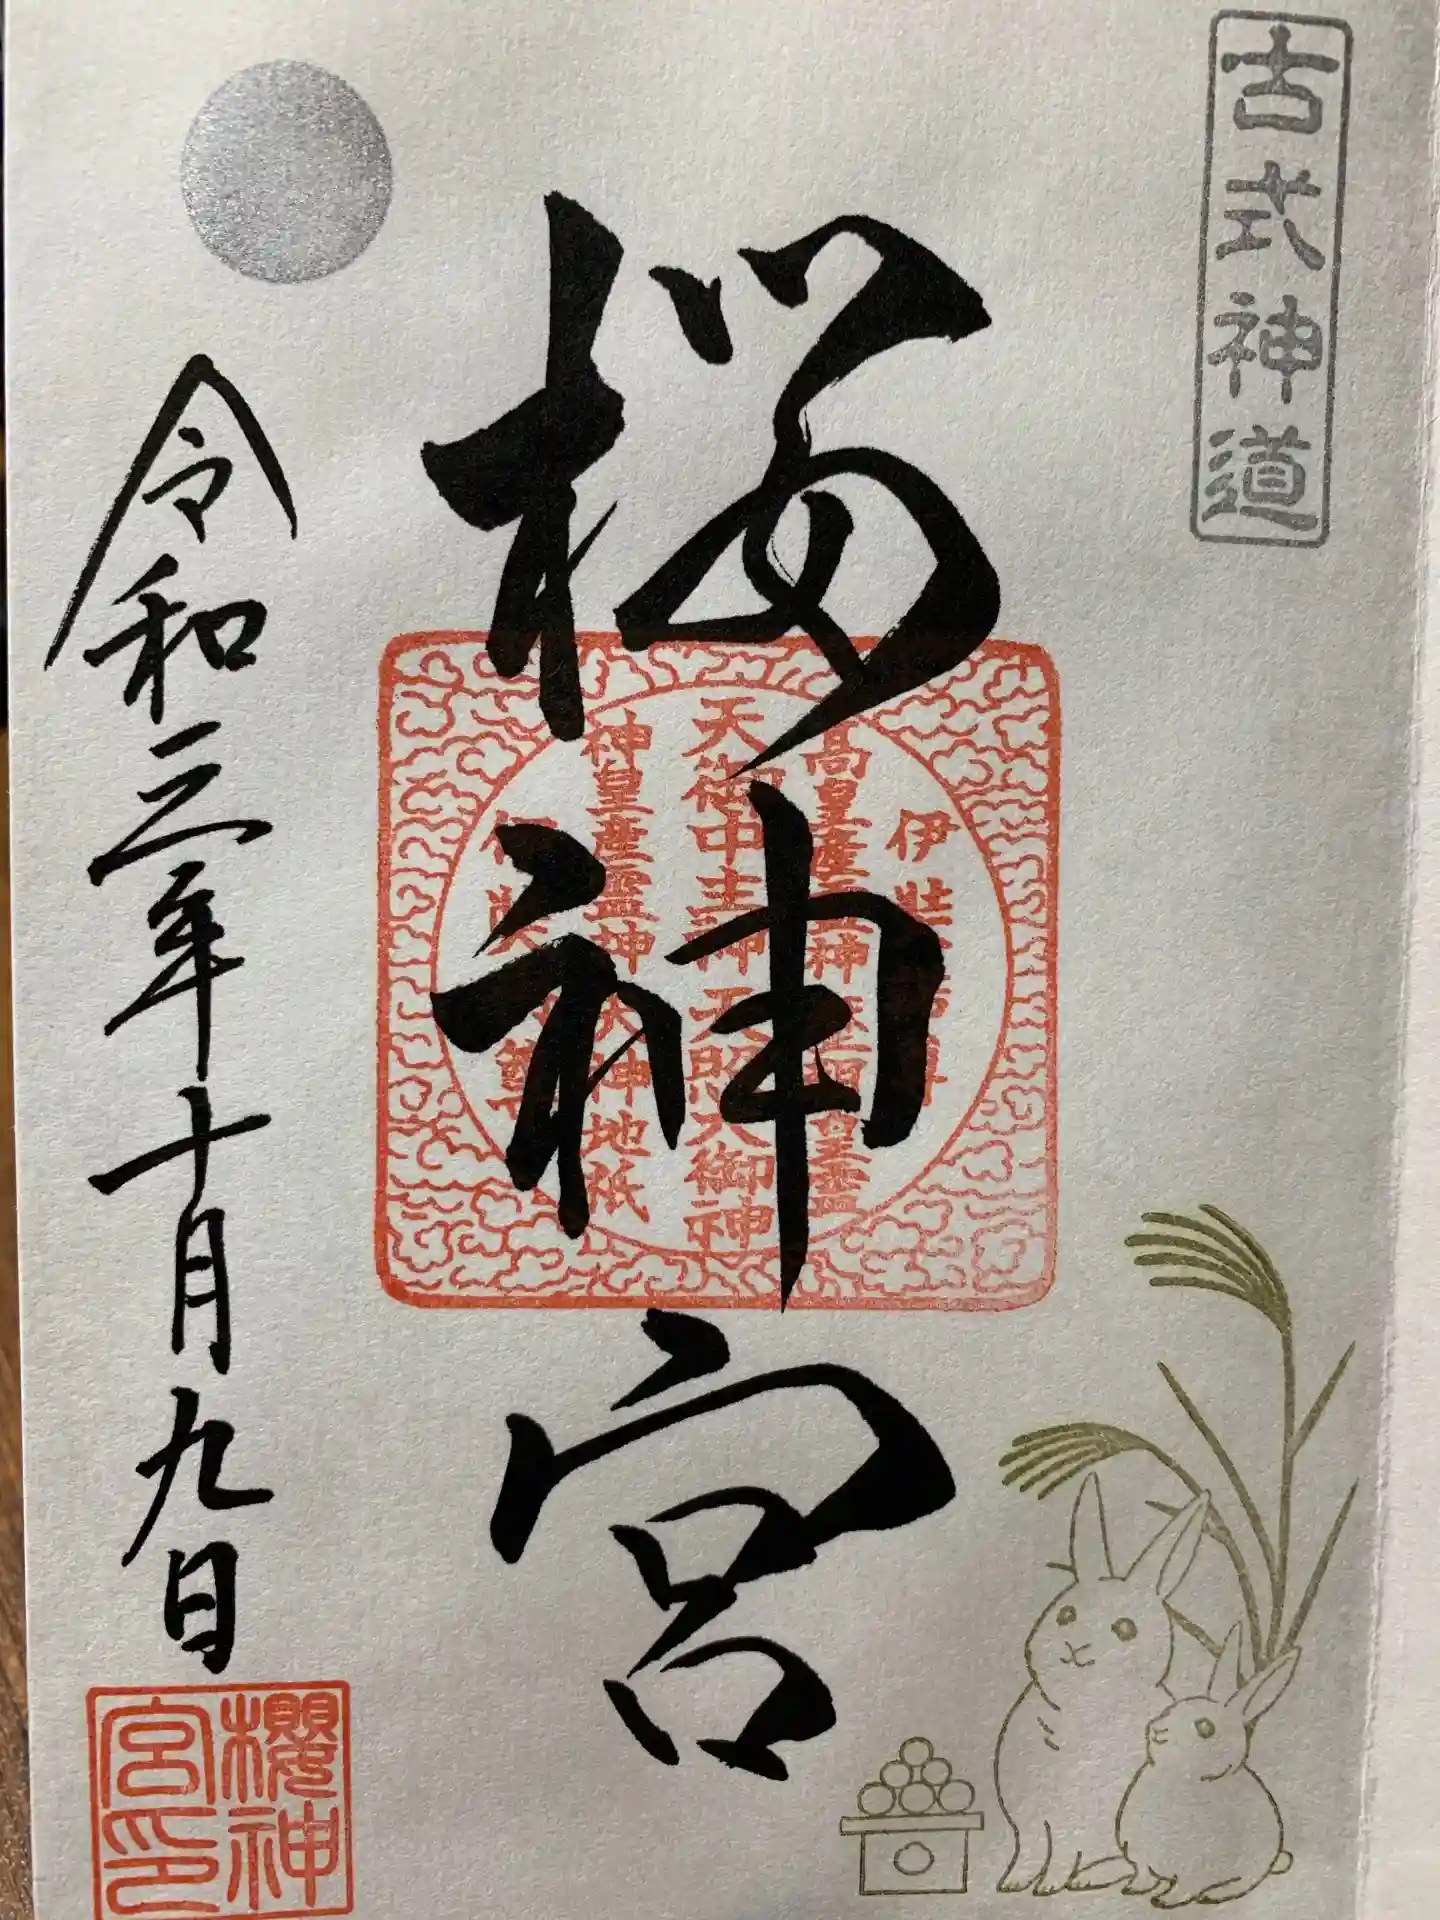 古式神道
桜神宮
伊
高皇産霊神
天御中主神天照大御神
神皇産霊神天神地祇
令和三年十月九日
櫻神
宮印